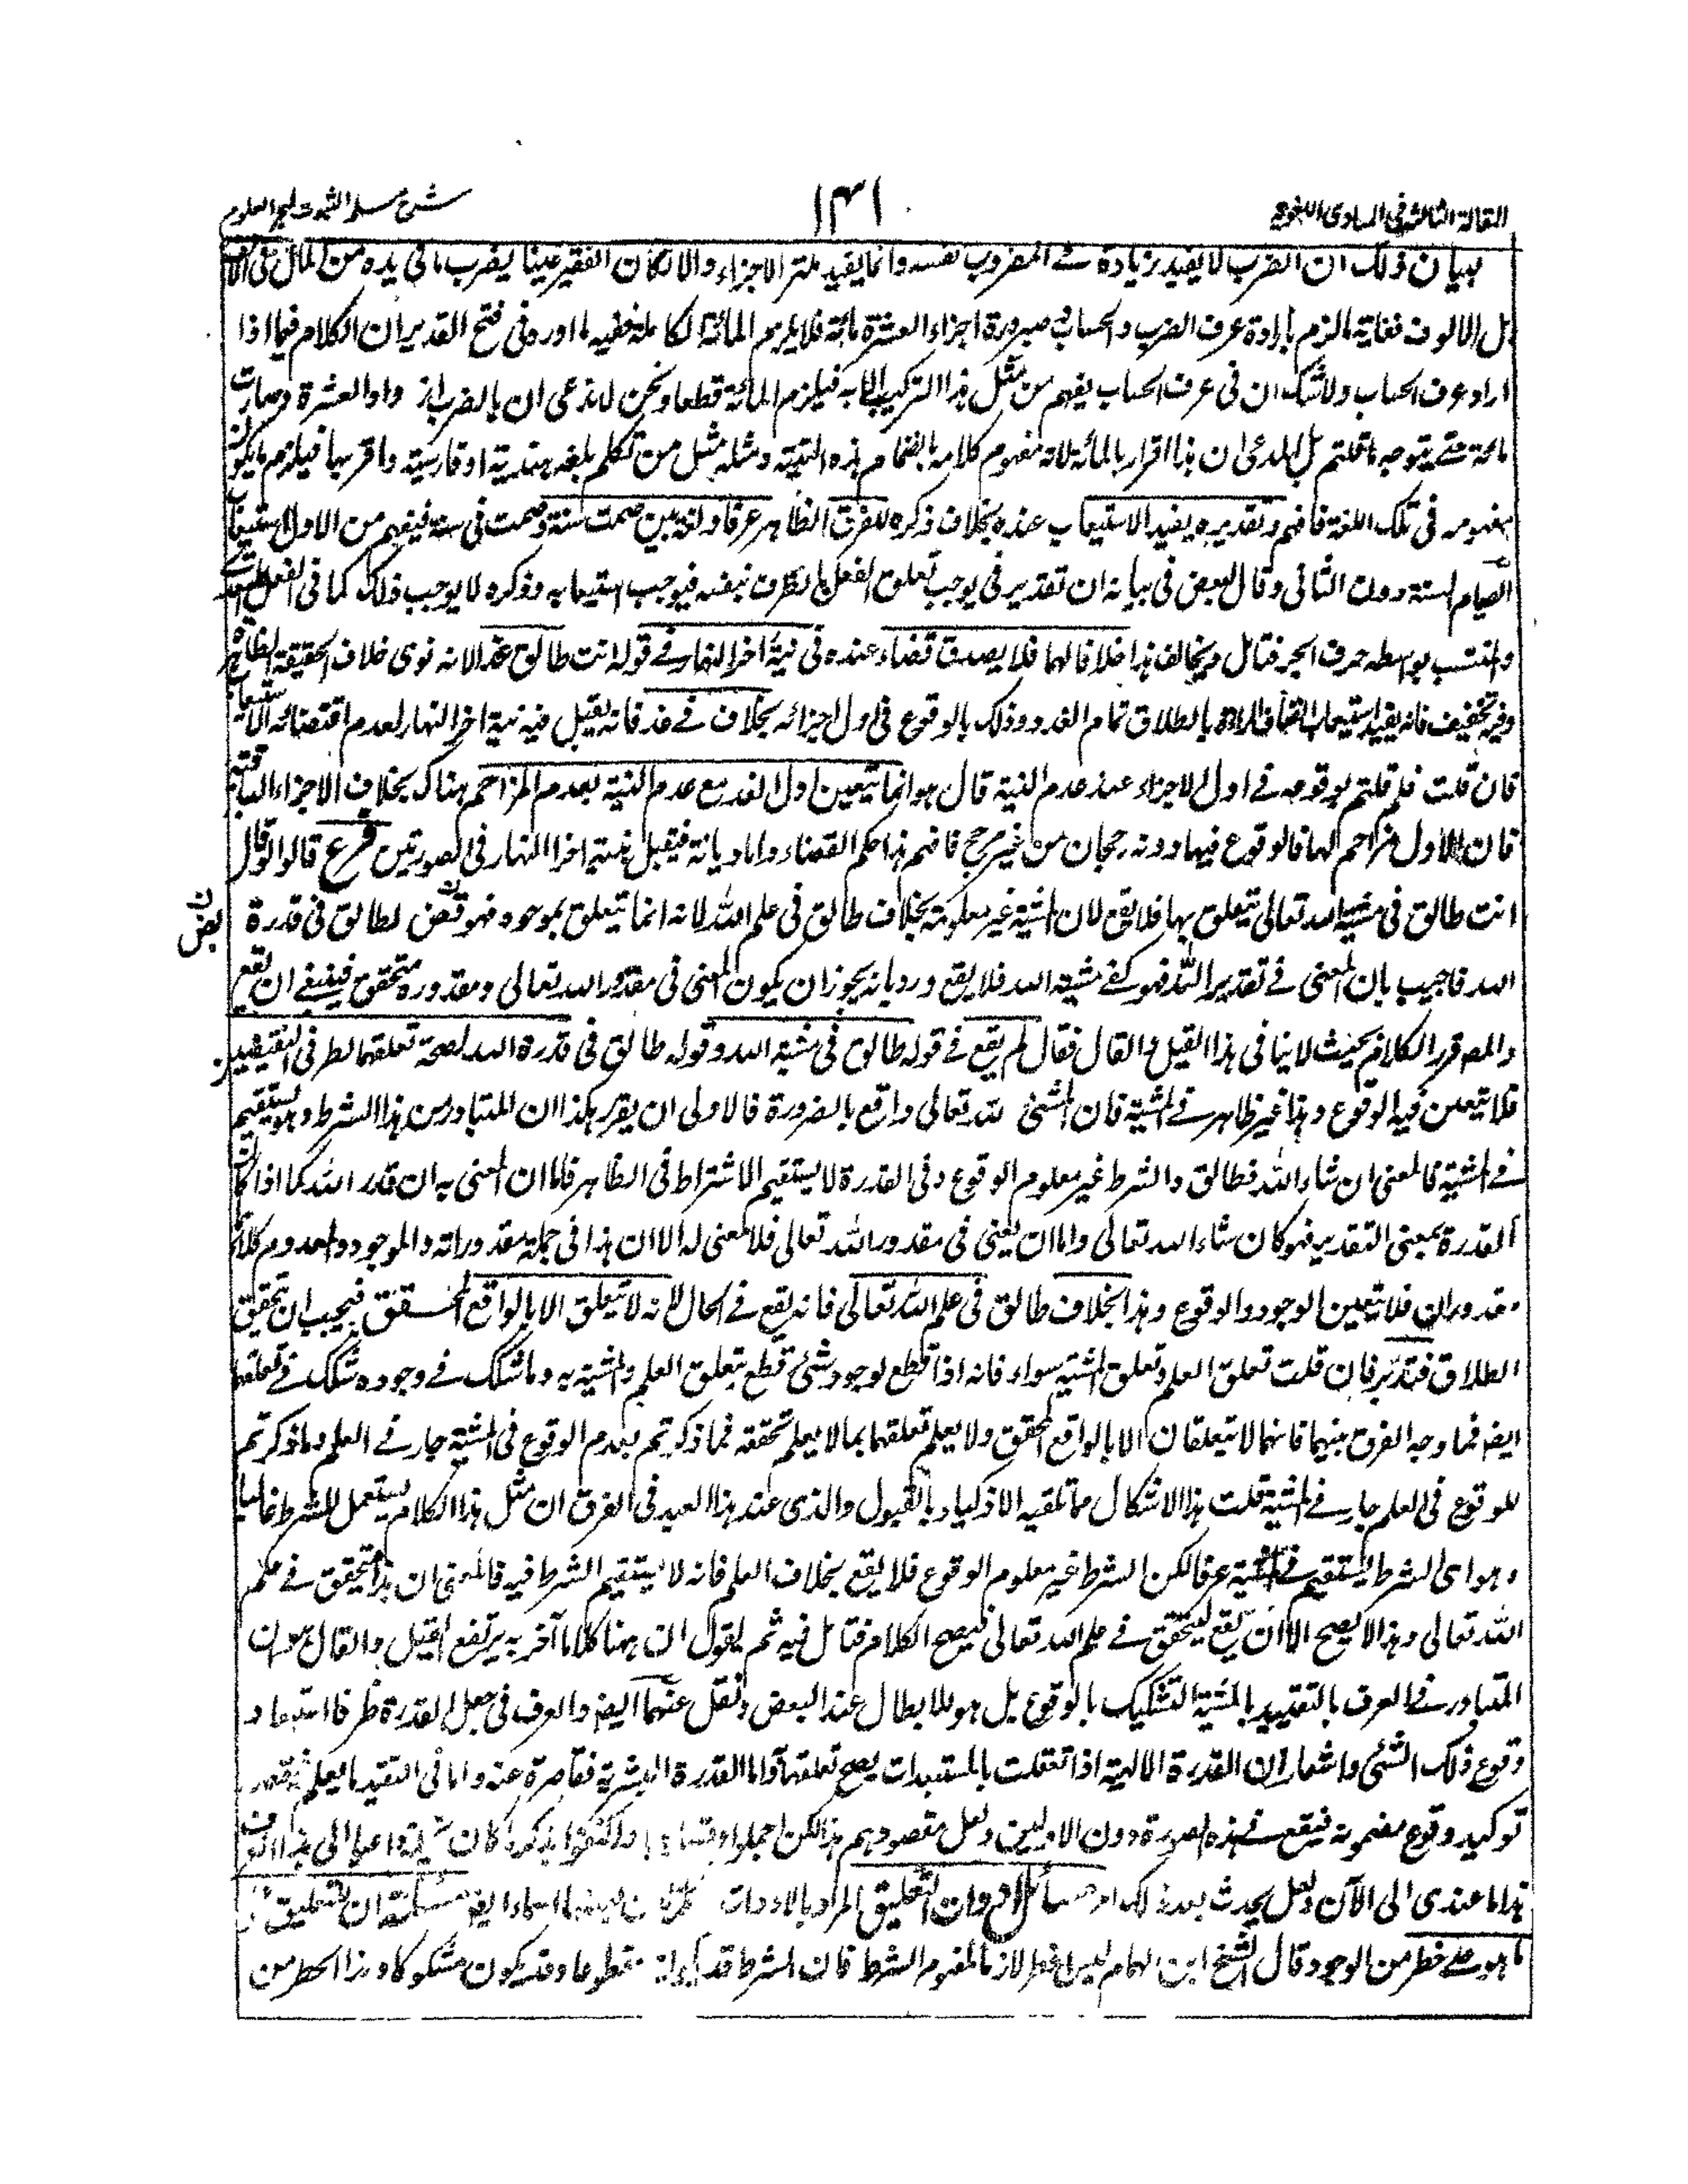 المقالة الثالثة فى المبادى اللغوية
١٣١
شرح مسلم الثبوت لبحر العلوم
بيان ذلك ان الضرب لا يفيد زيادة فى المضروب نفسه وانما يفيد كثر الاجزاء والا لكان الفقير غنيا يضرب ما فى يده من المال فى الالف
بل الالوف فغاية ما لزم بارادة عرف الضرب والحساب صيرورة اجزاء العشرة مائة فلا يلزم المائة الكاملة ففيه ما اورد فى فتح القدير ان الكلام فيما اذا
اراد عرف الحساب ولا شك ان فى عرف الحساب يفهم من مثل هذا التركيب المائة فيلزم المائة قطعا ونحن لا ندعى ان بالضرب ازداد العشرة وصارت
مائة حتى يتوجه ما قلتم بل المدعى ان هذا اقرار بالمائة لانه مفهوم كلامه بانضمام هذه النية ومثله مثل من تكلم بلغة هندية او فارسية واقر بها فيلزم ما يكون
مفهومه فى تلك اللغة فافهم وتقديره يفيد الاستيعاب عنده بخلاف ذكره للفرق الظاهر عرفا ولغة بين صمت سنة وصمت فى سنة فيفهم من الاول استيعاب
الصيام لسنة دون الثانى وقال البعض فى بيانه ان تقدير فى يوجب تعلق الفعل بالظرف بنفسه فيوجب استيعابه وذكره لا يوجب ذلك كما فى الفعل
والمنتسب بواسطة حرف الجر فتامل ويخالف هذا خلافا لهما فلا يصدق قضاء عنده فى نية آخر النهار فى قوله انت طالق غدا لانه نوى خلاف الحقيقة الظاهرة
وفيه تخفيف فانه يفيد استيعاب بالطلاق تمام الغد وذلك بالوقوع فى اول اجزائه بخلاف فى غد فانه يقبل فيه نية آخر النهار لعدم اقتضائه الاستيعاب
فان قلت فلم قلتم بوقوعه فى اول الاجزاء عند عدم النية قال هو انما يتعين اول الغد مع عدم النية بعدم المزاحم هناك بخلاف الاجزاء الباقية
فان الاول مزاحم لها فالوقوع فيها دونه رجحان من غير مرجح فافهم هذا حكم القضاء واما ديانة فيقبل نية آخر النهار فى الصورتين فرع قالوا لو قال
انت طالق فى مشية الله تعالى يتعلق بها فلا يقع لان المشية غير معلومة بخلاف طالق فى علم الله لانه انما يتعلق بموجود فهو نقض لطالق فى قدرة
الله فاجيب بان المعنى فى تقدير الله فهو كفى مشية الله فلا يقع ورد بانه يجوز ان يكون المعنى فى مقدور الله تعالى ومقدوره متحقق فينبغى ان يقع
والمصـ قرر الكلام بحيث لا ينافى هذا القيل والقال فقال لم يقع فى قوله طالق فى مشية الله وقوله طالق فى قدرة الله لصحة تعلقهما لطرفى النقيضين
فلا يتعين فيه الوقوع وهذا غير ظاهر فى المشية فان لله تعالى واقع بالضرورة فالاولى ان يقرر هكذا ان المتبادر من هذا الشرط وهو يستقيم
فى المشية فالمعنى ان شاء الله فطالق والشرط غير معلوم الوقوع وفى القدرة لا يستقيم الاشتراط فى الظاهر فاما ان المعنى به ان قدر الله كما اذا كان
القدرة بمعنى التقدير فهو كان شاء الله تعالى واما ان يعنى فى مقدور الله تعالى فلا معنى له الا ان هذا فى جملة مقدوراته والموجود والمعدوم كلاهما
مقدوران فلا يتعين الوجود والوقوع وهذا بخلاف طالق فى علم الله تعالى فانه يقع فى الحال لانه لا يتعلق الا بالواقع المحقق فيجب ان تحقيق
الطلاق فتدبر فان قلت تعلق العلم وتعلق المشية سواء فانه اذا قطع لوجود شئ قطع بتعلق العلم والمشية به وما شك فى وجوده شك فى تعلقهما
ايضا فما وجه الفرق بينهما فانهما لا يتعلقان الا بالواقع المحقق ولا يعلم تعلقهما بما لا يعلم تحققه فما ذكرتم بعدم الوقوع فى المشية جار فى العلم وما ذكرتم
للوقوع فى العلم جار فى المشية قلت هذا الاشكال مما تلقيه الاذكياء بالقبول والذى عند هذا العبد فى الفرق ان مثل هذا الكلام يستعمل للشرط غالبا
وهو اى الشرط يستقيم فى المشية عرفا لكن الشرط غير معلوم الوقوع فلا يقع بخلاف العلم فانه لا يستقيم الشرط فيه فالمعنى ان هذا متحقق فى علم
الله تعالى وهذا لا يصح الا ان يقع ليتحقق فى علم الله تعالى فيصح الكلام فتامل فيه ثم يقول ان ههنا كلاما آخر به يرتفع القيل والقال هو ان
المتبادر فى العرف بالتقييد بالمشية التشكيك بالوقوع بل هو للابطال عند البعض ونقل عنهما ايضا والعرف فى جعل القدرة ظرفا استبعاد
وقوع ذلك الشئ واشعار ان القدرة الالهية اذا تعلقت بالمستبعدات يصح تعلقها واما القدرة البشرية فقاصرة عنه واما فى التقييد بالعلم فيقصد
توكيد وقوع مضمونه فيقع فى هذه الصورة دون الاوليين ولعل مقصودهم هذا لكن اجملوا
هذا ما عندى الى الآن ولعل الله يحدث بعد ذلك امرا مسائل ادوات التعليق المراد بالادوات مسئلة ان للتعليق
ما هو على خطر من الوجود قال الشيخ ابن الهمام ليس الخطر لازما لمفهوم الشرط فان الشرط قد يكون مقطوعا وقد يكون مشكوكا وهذا الخطر من